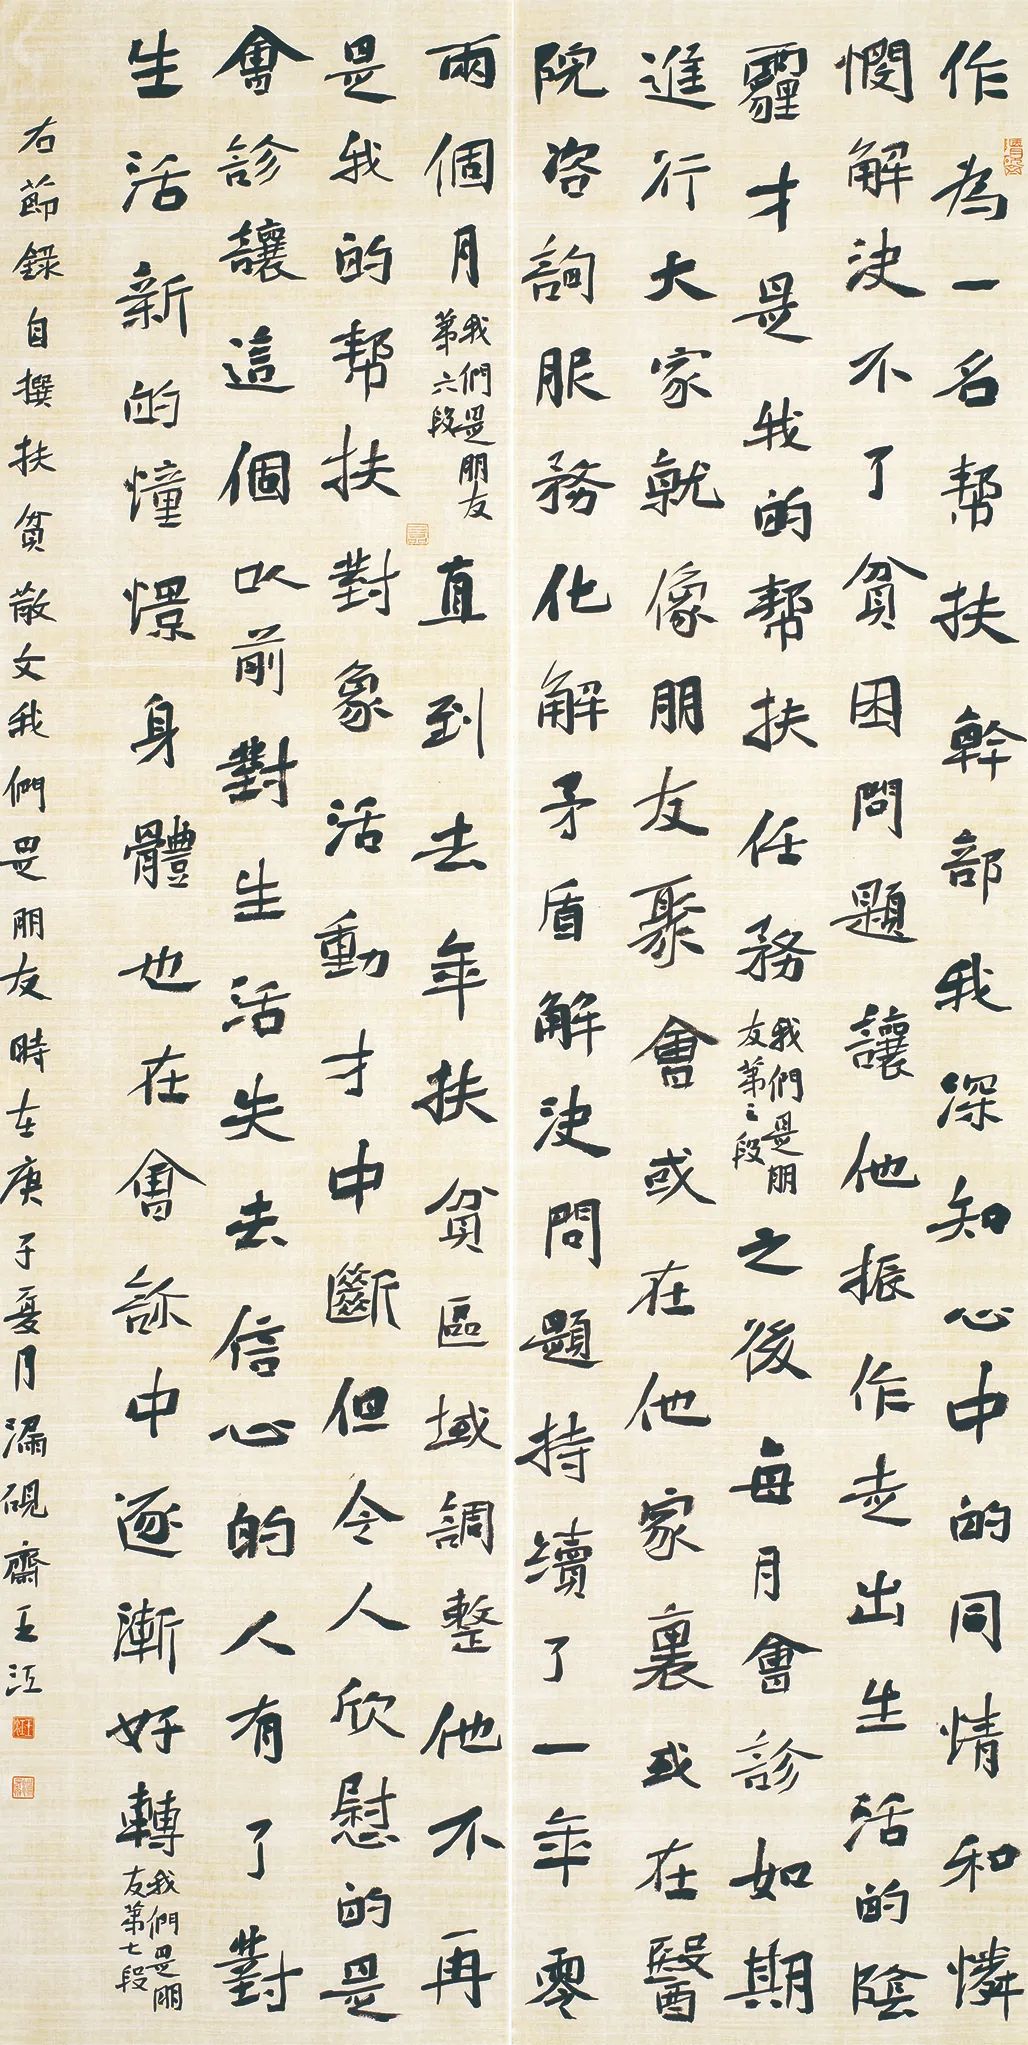 作為一名帮扶幹部我深知心中的同情和憐
憫解決不了貧困問題讓他振作走出生活的陰
霾才是我的帮扶任務
我們是朋
友第三段
之後每月會診如期
進行大家就像朋友聚會或在他家裏或在醫
院咨詢服務化解矛盾解決問題持續了一年零
兩個月
我們是朋友
第六段
直到去年扶貧區域調整他不再
是我的帮扶對象活動才中斷但令人欣慰的是
會診讓這個以前對生活失去信心的人有了對
生活新的憧憬身體也在會診中逐漸好轉
我們是朋
友第七段
右節錄自撰扶貧散文我們是朋友時在庚子夏月漏硯齋王江